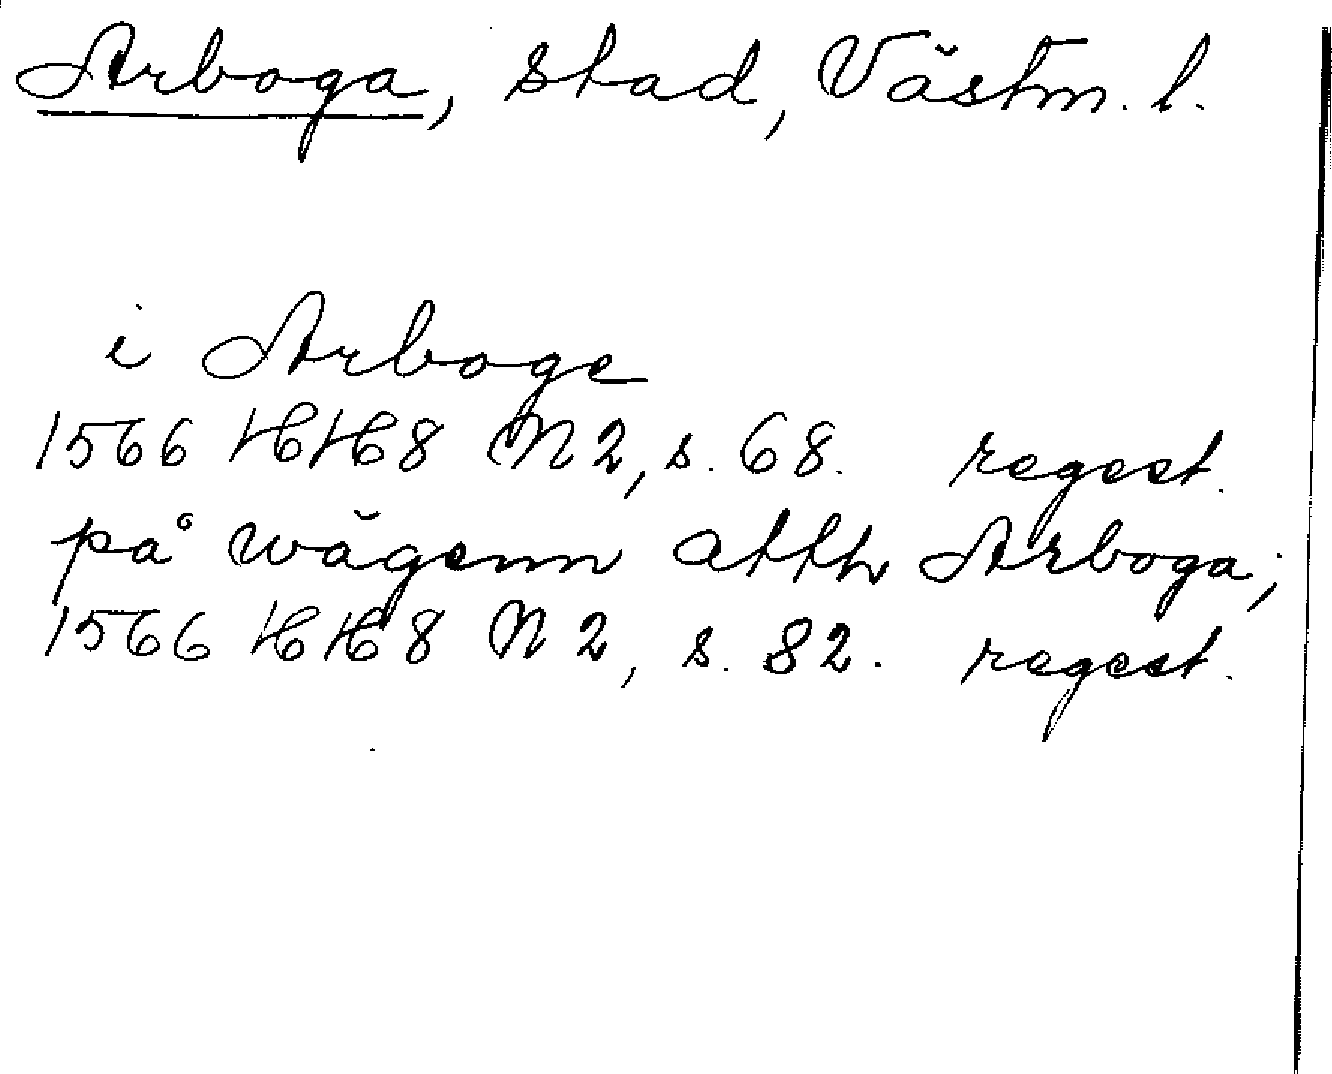 Arboga, stad, Västm. l.
i Arboge
1566 HH8 N 2, s. 68. regest.
på wägenn atth Arboga;
1566 HH8 N 2, s. 82. regest.